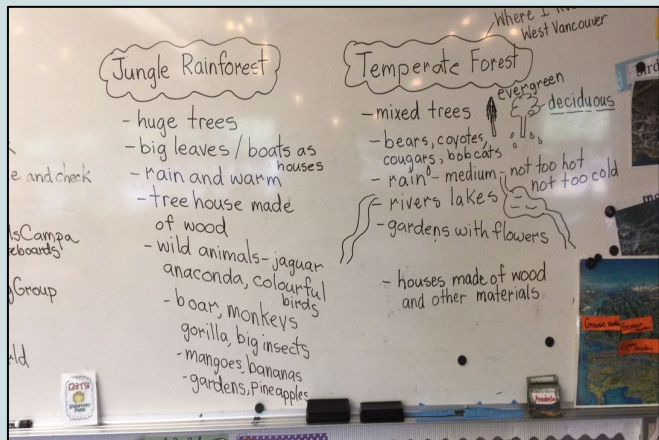 Where I
West Vancouver
Jungle Rainforest
- huge trees
- big leaves / boats as
houses
- rain and warm
- tree house made
of wood
- wild animals - jaguar
anaconda, colourful
birds
- boar, monkeys
gorilla, big insects
- mangoes, bananas
- gardens, pineapples
Temperate Forest
- mixed trees
evergreen
deciduous
- bears, coyotes,
cougars, bobcats
- rain - medium - not too hot
not too cold
- rivers lakes
- gardens with flowers
- houses made of wood
and other materials
e and check
Group